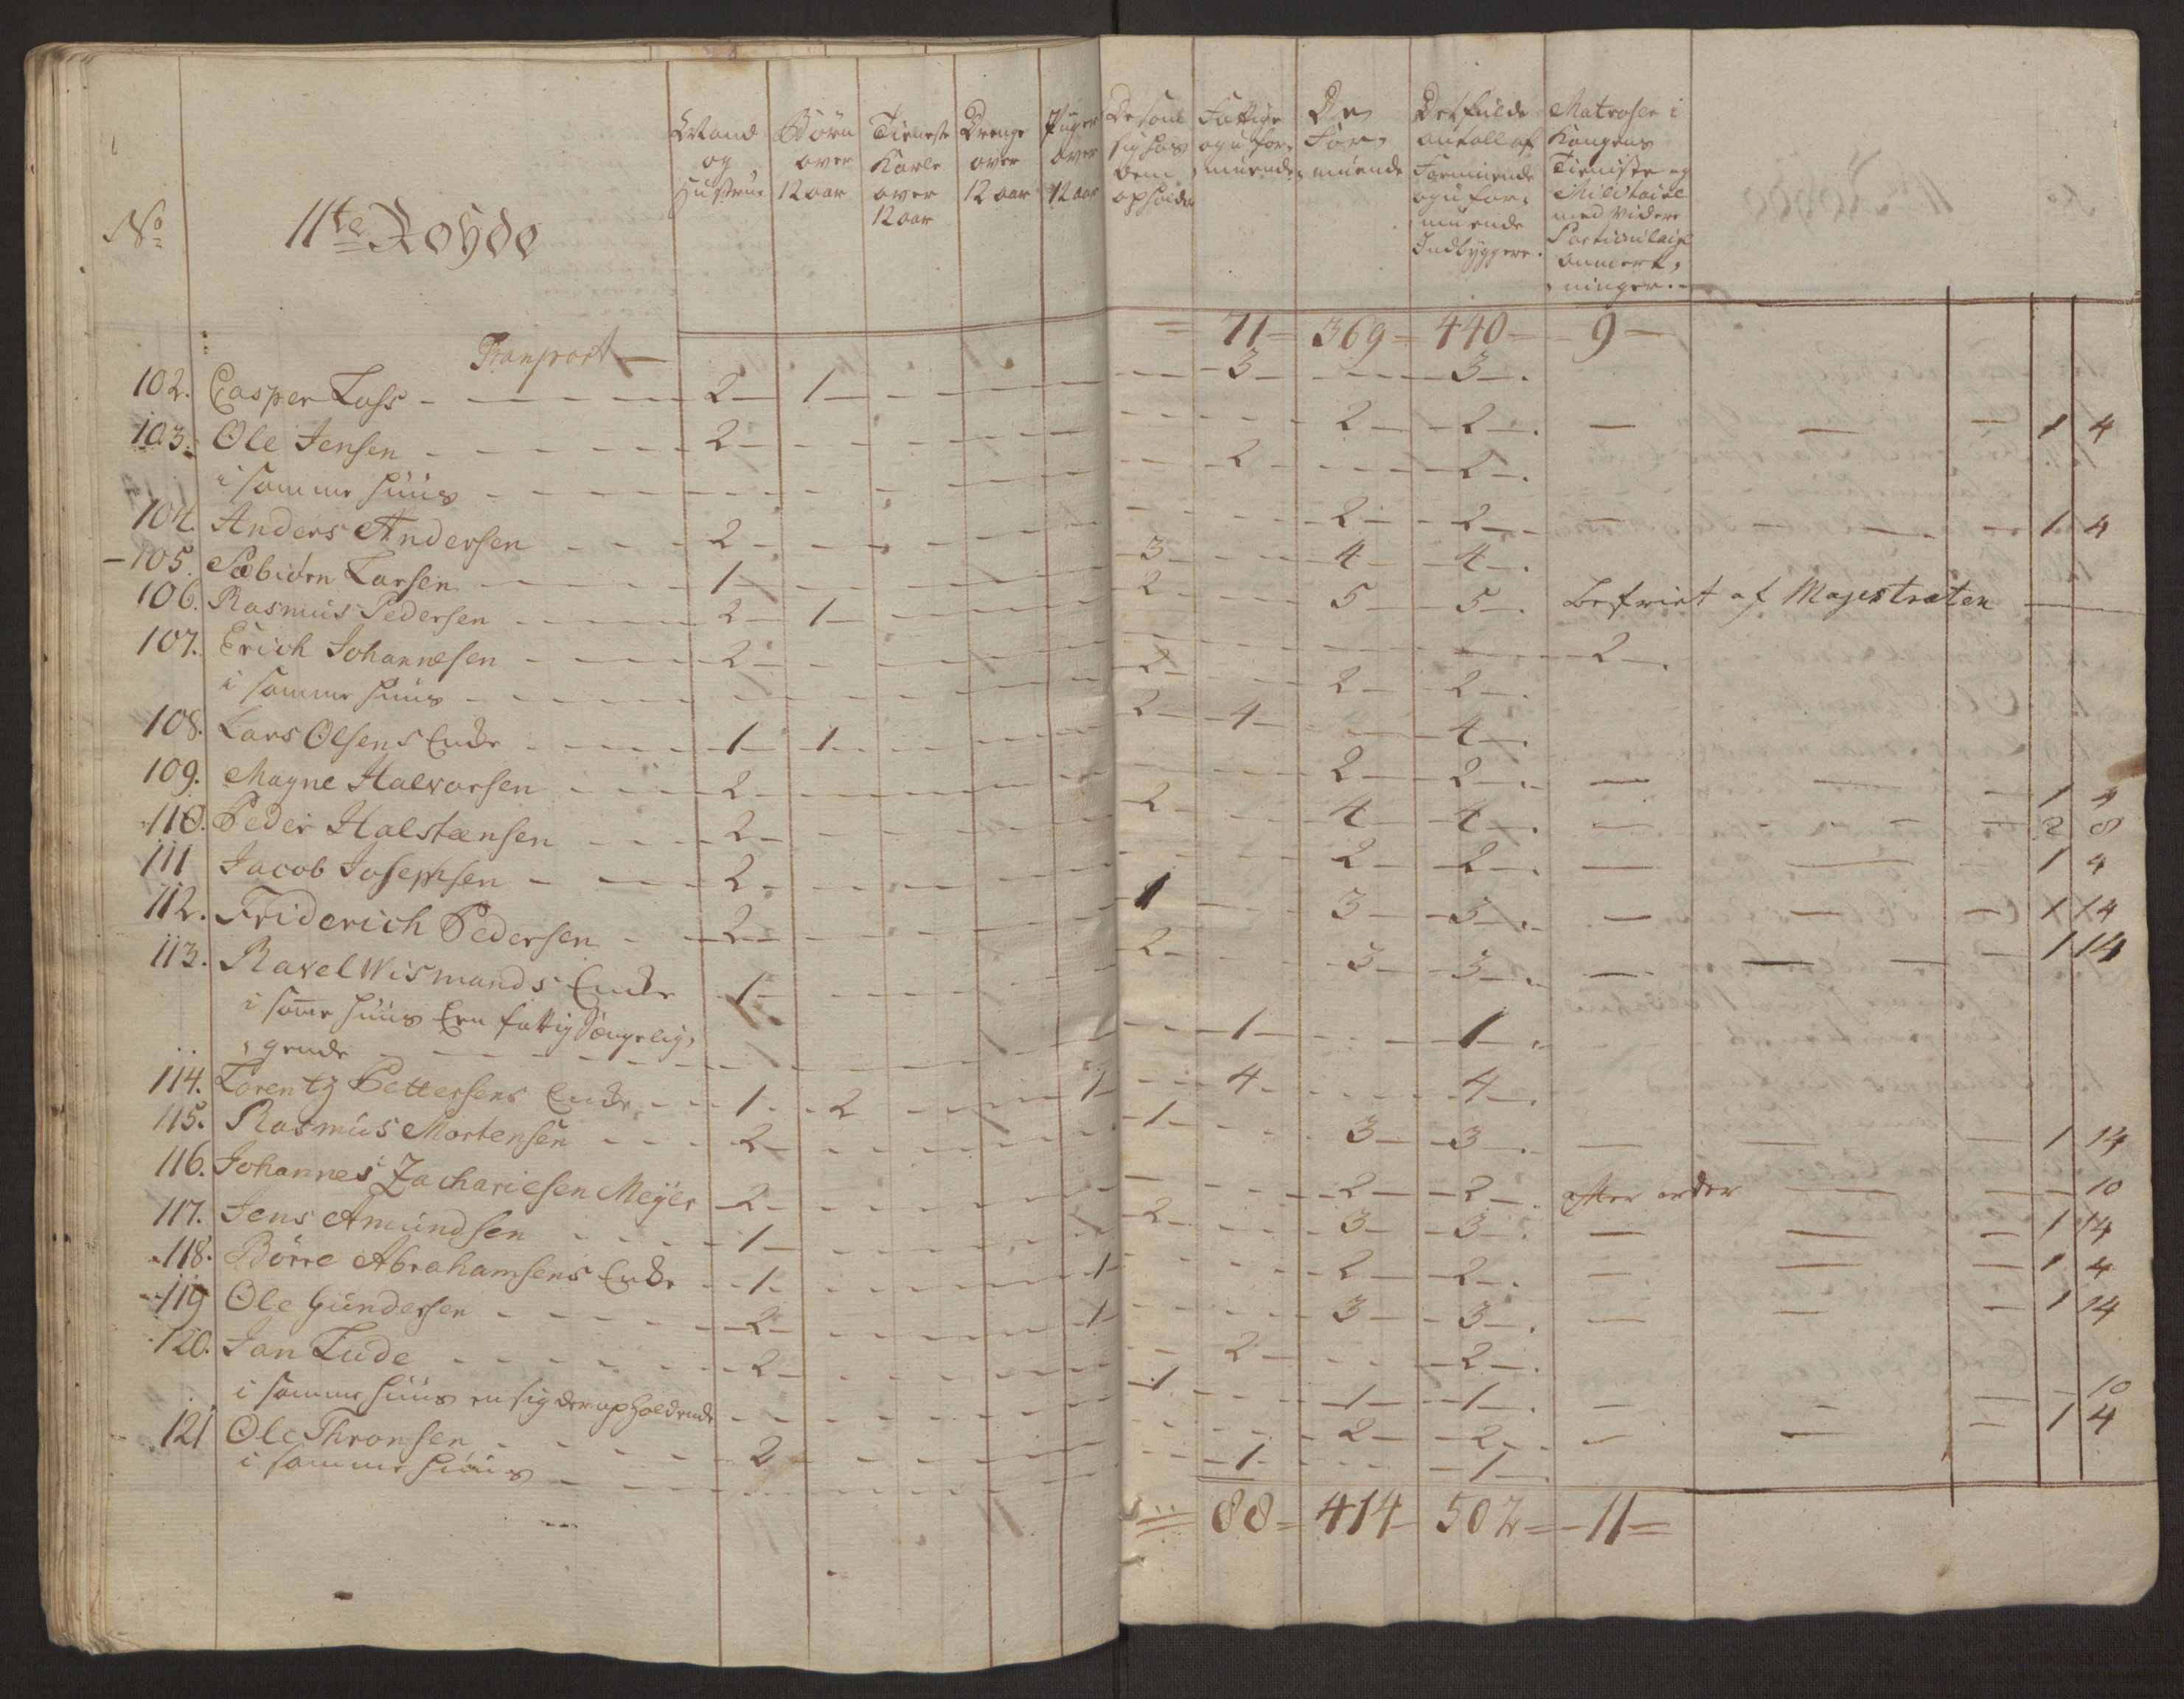 No
11te Royde
Mand og Hustrue
Börn over 12 aar
Tieneste Karle over 12 aar
Drenge over 12 aar
Piiger over 12 aar
De som sig hos dem opholder
Fattige og ufor-muende
De For-muende
Det fulde antall af Formuende og ufor-muende Indbyggere.
Matroser i Kongens Tieniste og Militaire med videre Particulaire anmerk-ninger.
Transport — = 71 = 369 = 440 = 9 —
102. Casper Lass - 2 - 1 - 3 - 3 -.
103. Ole Jensen - 2 - 2 - 2 -. — 1 4
i samme huus - 2 - 2 -.
104. Anders Andersen - 2 - 2 - 2 -. — 1 4
105. Sæbiörn Larsen - 1 - 3 - 4 - 4 -.
106. Rasmus Pedersen - 2 - 1 - 2 - 5 - 5 -. befriet af Majestraten
107. Erich Johannesen - 2 - 2 -.
i samme huus - 2 - 2 - 2 -.
108. Lars Olsens Encke - 1 - 1 - 2 - 4 - 4 -.
109. Magne Halvorsen - 2 - 2 - 2 -. — 1 4
110. Peder Halstensen - 2 - 2 - 4 - 4 -. — 2 8
111 Jacob Josephsen - 2 - 2 - 2 -. — 1 4
112. Friderich Pedersen - 2 - 1 - 3 - 3 -. — 1 14
113. Ravel Wismands Encke - 1 - 2 - 3 - 3 -. — 1 14
i same huus Een fattig Sængelig-
gende - 1 - 1 -.
114. Lorentz Pettersens Encke - 1 - 2 - 1 - 4 - 4 -.
115. Rasmus Mortensen - 2 - 1 - 3 - 3 -. — 1 14
116. Johannes Zachariesen Meyer - 2 - 2 - 2 -. efter order — 10
117. Jens Amundsen - 1 - 2 - 3 - 3 -. — 1 14
118. Börre Abrahamsens Encke - 1 - 1 - 2 - 2 -. — 1 4
119 Ole Gundersen - 2 - 1 - 3 - 3 -. — 1 14
120. Jan Lude - 2 - 2 - 2 -.
i samme huus en sig der opholdende - 1 - 1 - 1 -. — 10
121 Ole Thronsen - 2 - 2 - 2 -. — 1 4
i samme huus - 1 - 1 -.
88 = 414 - 502 = 11 =